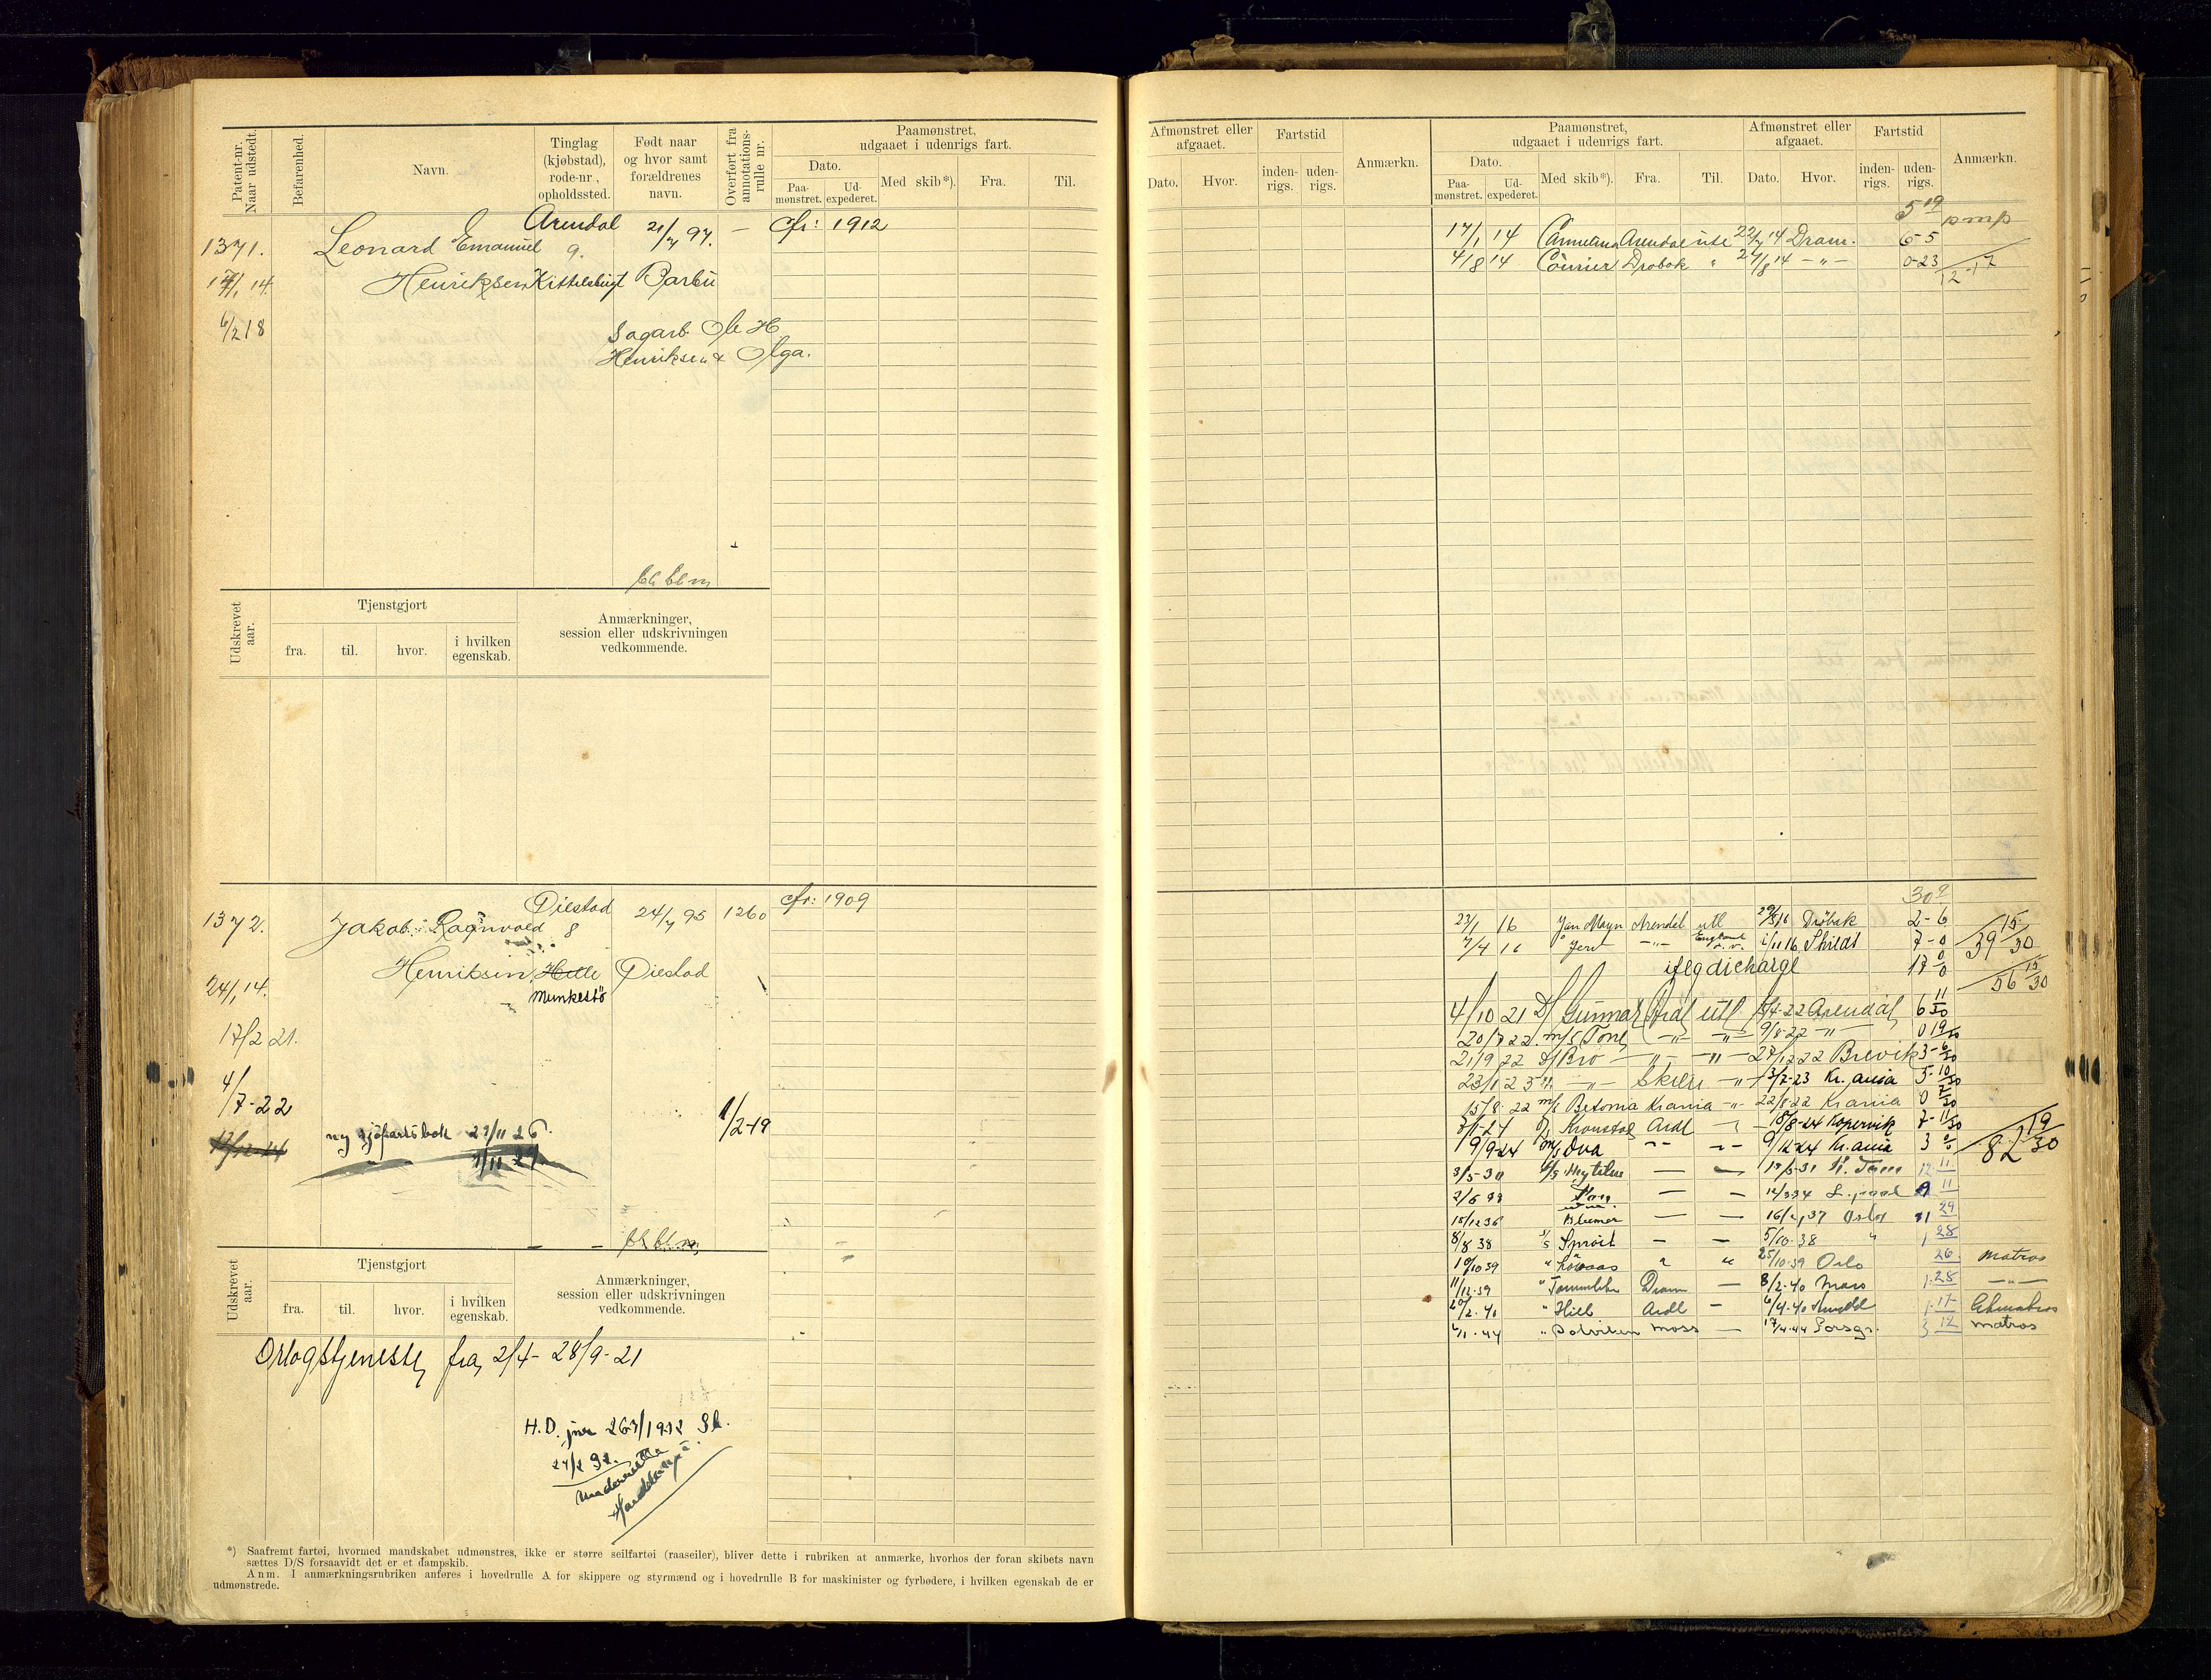 Patent-nr. Naar udstedt.
Befarenhed.
Navn.
Tinglag (kjøbstad), rode-nr., opholdssted.
Født naar og hvor samt forældrenes navn.
Overført fra annotations-rulle nr.
Paamønstret, udgaaet i udenrigs fart.
Dato.
Paa-mønstret.
Ud-expederet.
Med skib*).
Fra.
Til.
1371.
Leonard Emanuel
Arendal
9.
21/7 97.
—
Cfr: 1912
17/1 14.
Henriksen
Kittelsbugt
Barbu
6/2 18
Sagarb. Ole H
Henriksen & Olga.
Udskrevet aar.
Tjenstgjort
fra.
til.
hvor.
i hvilken egenskab.
Anmærkninger, session eller udskrivningen vedkommende.
1372.
Jakob Ragnvald
Øiestad
8
24/7 95
1260
cfr: 1909
24/1 14.
Henriksen
Hille
Øiestad
Munkestø
17/2 21.
4/7-22
1/2-19
ny sjøfartsbok 29/11 26.
Udskrevet aar.
Tjenstgjort
fra.
til.
hvor.
i hvilken egenskab.
Anmærkninger, session eller udskrivningen vedkommende.
Orlogstjeneste fra 2/4 - 28/9-21
H.D. jnr 263/1932
*) Saafremt fartøi, hvormed mandskabet udmønstres, ikke er større seilfartøi (raaseiler), bliver dette i rubriken at anmærke, hvorhos der foran skibets navn
sættes D/S forsaavidt det er et dampskib.
Anm. I anmærkningsrubriken anføres i hovedrulle A for skippere og styrmænd og i hovedrulle B for maskinister og fyrbødere, i hvilken egenskab de er
udmønstrede.
Afmønstret eller afgaaet.
Dato.
Hvor.
Fartstid
inden-rigs.
uden-rigs.
Anmærkn.
Paamønstret, udgaaet i udenrigs fart.
Dato.
Paa-mønstret.
Ud-expederet.
Med skib*).
Fra.
Til.
Afmønstret eller afgaaet.
Dato.
Hvor.
Fartstid
inden-rigs.
uden-rigs.
Anmærkn.
5 19
pmp
17/1 14 Arendal 22/7 14 Dram. 6-5
4/8 14 Courier Drobak " 27/8 14 -"- 0-23
12-17
30 9
23/1 16 Jan Mayn Arendal utl 29/3 16 Drøbak 2-6
7/4 16 Arendal England 1/11 16 Shilds 7-0
39 15/30
iflg dicharge 17 0/0
56 15/30
4/10 21 D/ Gunnar Ardl utl 22 Arendal 6 11/30
20/7 22 m/s Tone -"- -"- 9/8-22 -"- 0 19/30
21/9 22 D/ Bro -"- -"- 27/12 22 Brevik 3-6/30
23/1-23 -"- Skien -"- 3/7-23 Kr.ania 5-10/30
15/8-22 m/s Betonia Krania -"- 22/8 22 Krania 0 7/30
24 Kronstad Ardl 18/8-24 Kopervik 7-11/30
9/9-24 m/s Ova -"- -"- 9/12 24 Kr.ania 3 0/0
82 19/30
3/5-30 Mytilus — — 31 12 11
2/6 33 — — L.pool 9 11
15/12 36 Blumer — — 16/2 37 Oslo 1 29
8/8 38 S/S Sprøit — — 5/10-38 " 1 28
10/10 39 " " " 25/10-39 Oslo 26 Matros
11/12-39 " Dram — 8/2-40 Moss 1-28 -"-
20/2-40 " Ardl — 6/4-40 1-17
6/1-44 " Moss — 17/4-44 Porsgr. 3 12 Matros